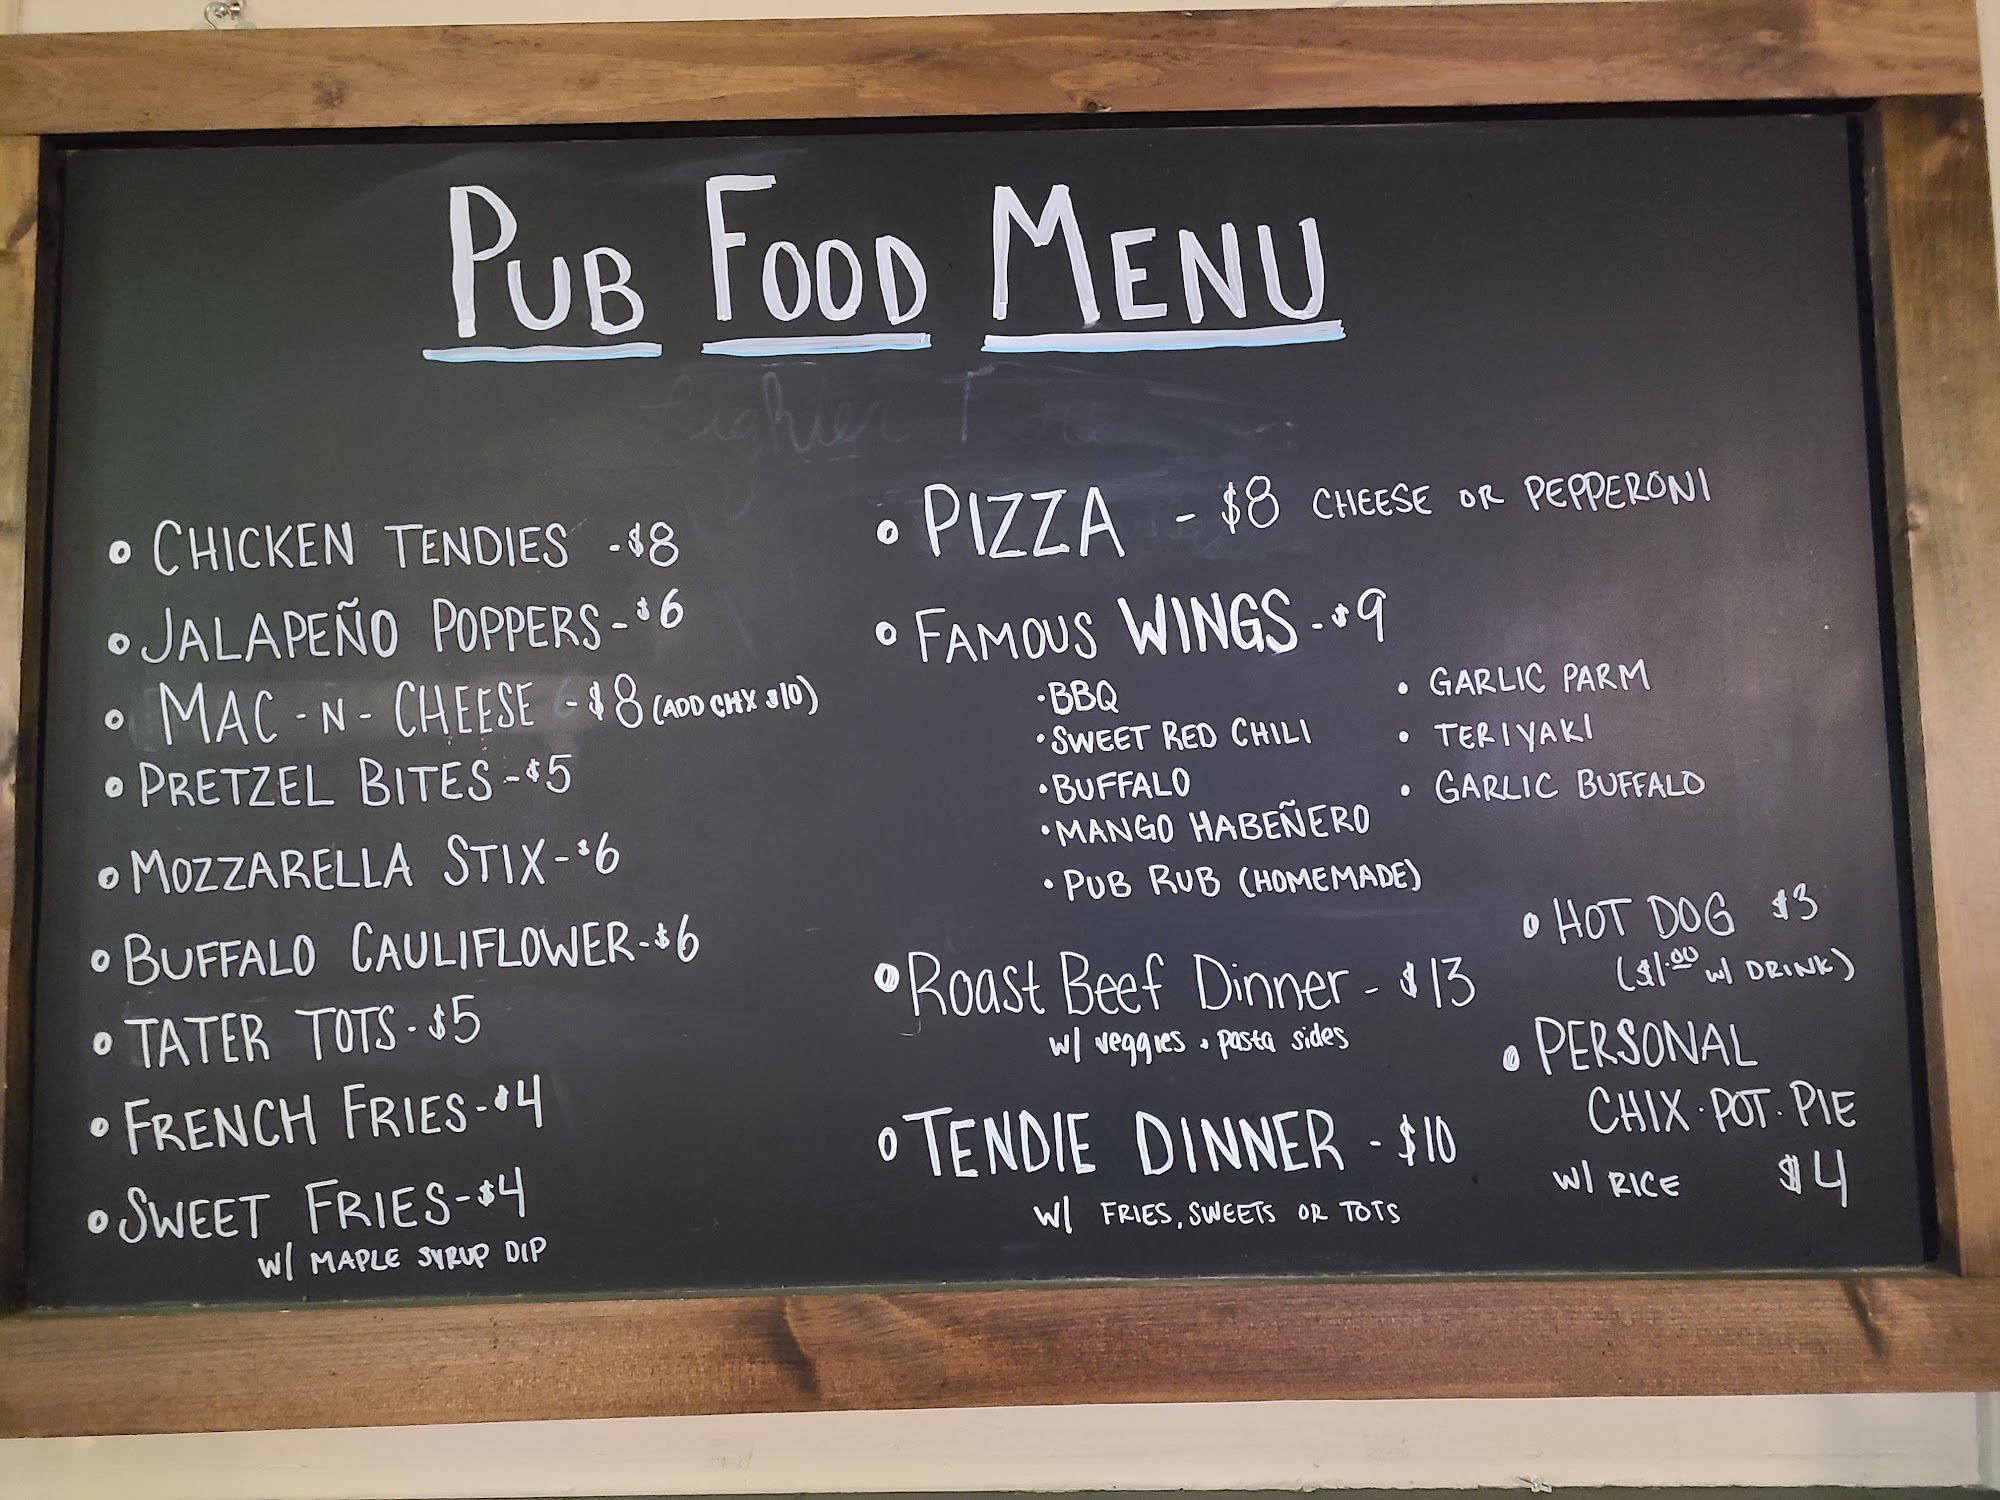 PUB FOOD MENU
• CHICKEN TENDIES - $8
• JALAPEÑO POPPERS - $6
• MAC - N - CHEESE - $8 (ADD CHX $10)
• PRETZEL BITES - $5
• MOZZARELLA STIX - $6
• BUFFALO CAULIFLOWER - $6
• TATER TOTS - $5
• FRENCH FRIES - $4
• SWEET FRIES - $4
W/ MAPLE SYRUP DIP
• PIZZA - $8 CHEESE OR PEPPERONI
• FAMOUS WINGS - $9
• BBQ
• SWEET RED CHILI
• BUFFALO
• MANGO HABEÑERO
• PUB RUB (HOMEMADE)
• GARLIC PARM
• TERIYAKI
• GARLIC BUFFALO
• Roast Beef Dinner - $13
w/ veggies + pasta sides
• TENDIE DINNER - $10
W/ FRIES, SWEETS OR TOTS
• HOT DOG $3
($1.00 W/ DRINK)
• PERSONAL
CHIX · POT · PIE
W/ RICE $4